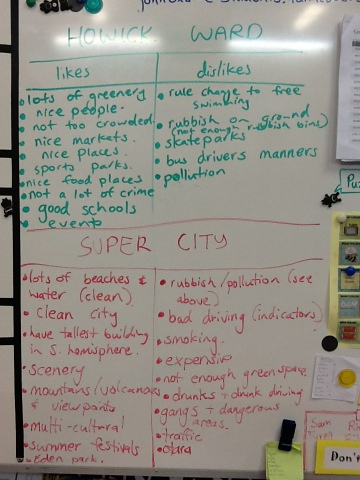 HOWICK WARD
likes
• lots of greenery
• nice people.
• not too crowded
• nice markets.
• nice places
• sports parks.
• nice food places
• not a lot of crime
• good schools
• events
dislikes
• rule change to free
swimming
• rubbish on ground
(not enough rubbish bins)
• skateparks
• bus drivers manners
• pollution
SUPER CITY
• lots of beaches &
water (clean)
• clean city
• have tallest building
in S. hemisphere.
• scenery
• mountains/volcanoes
& viewpoints
• multi-cultural
• summer festivals
• Eden park.
• rubbish/pollution (see
above)
• bad driving (indicators)
• smoking.
• expensive
• not enough greenspace
• drunks + drunk driving
• gangs + dangerous
areas.
• traffic
Sam
Don't